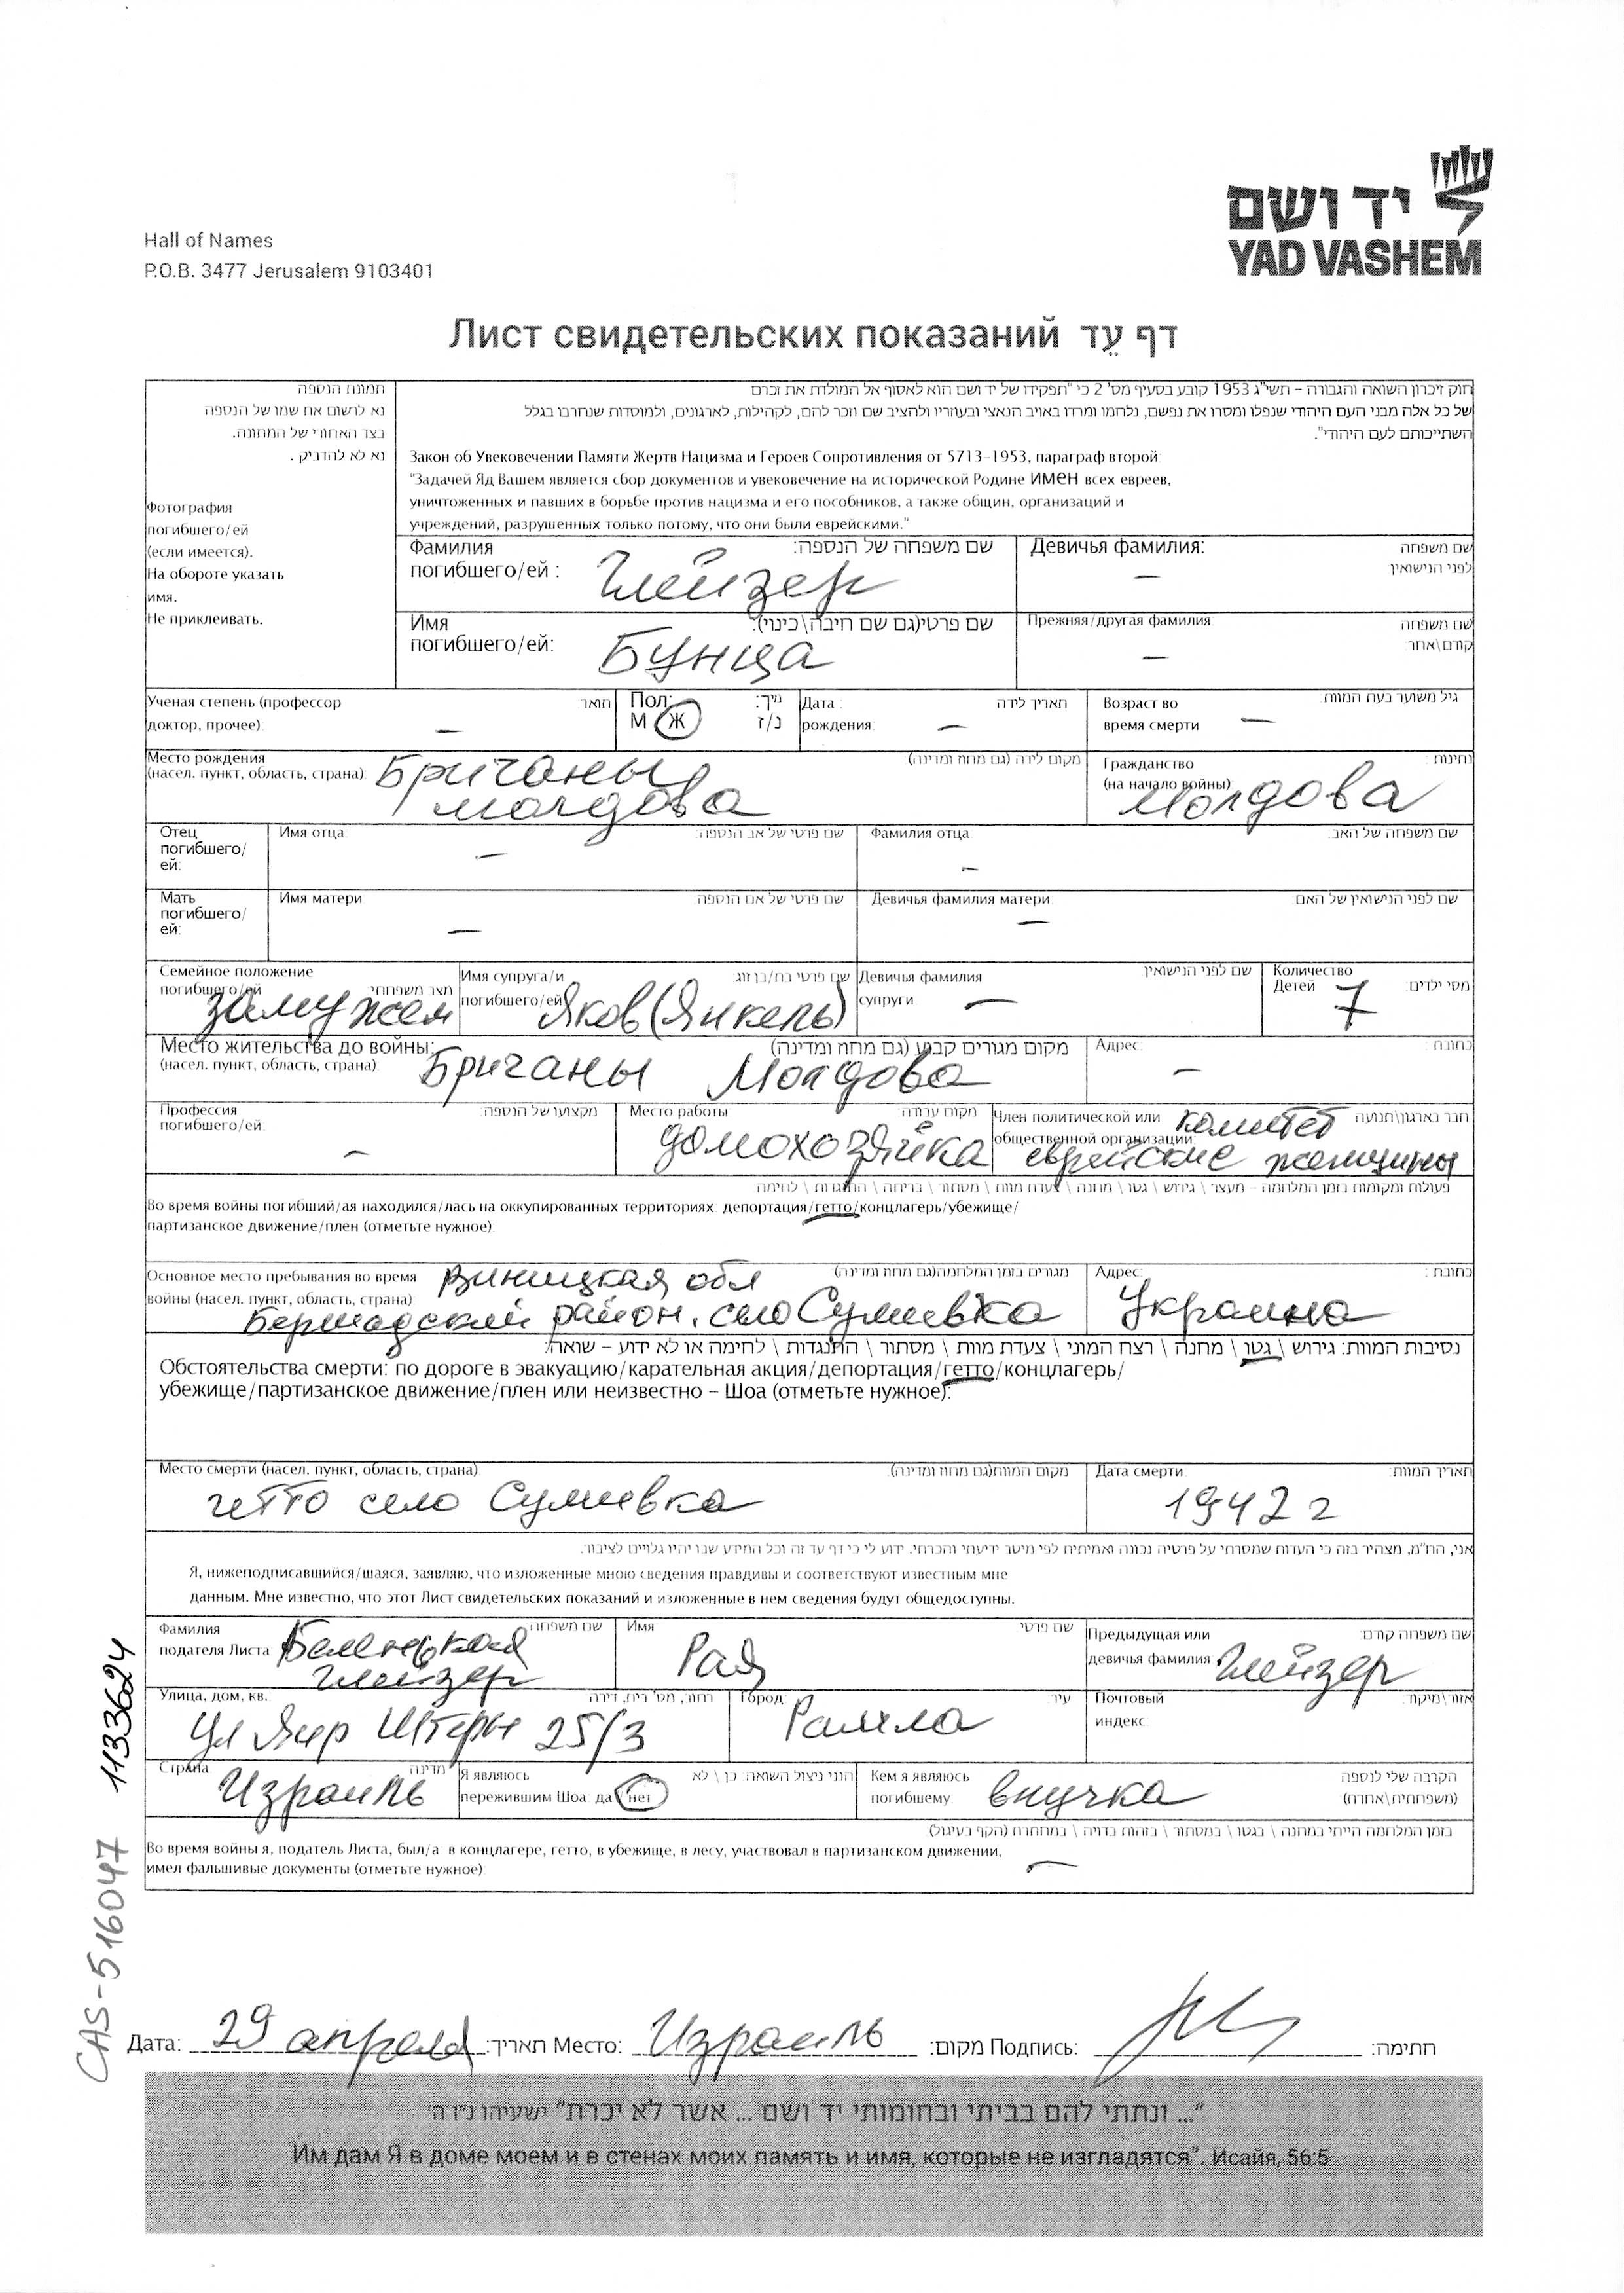 יד ושם
YAD VASHEM
Hall of Names
P.O.B. 3477 Jerusalem 9103401
Лист свидетельских показаний דף עֵד
תמונת הנספה
נא לרשום את שמו של הנספה
בצד האחורי של התמונה.
נא לא להדביק .
Фотография
погибшего/ей
(если имеется).
На обороте указать
имя.
Не приклеивать.
חוק זיכרון השואה והגבורה – תשי"ג 1953 קובע בסעיף מס' 2 כי "תפקידו של יד ושם הוא לאסוף אל המולדת את זכרם
של כל אלה מבני העם היהודי שנפלו ומסרו את נפשם, נלחמו ומרדו באויב הנאצי ובעוזריו ולהציב שם וזכר להם, לקהילות, לארגונים, ולמוסדות שנחרבו בגלל
השתייכותם לעם היהודי".
Закон об Увековечении Памяти Жертв Нацизма и Героев Сопротивления от 5713–1953, параграф второй:
"Задачей Яд Вашем является сбор документов и увековечение на исторической Родине ИМЕН всех евреев,
уничтоженных и павших в борьбе против нацизма и его пособников, а также общин, организаций и
учреждений, разрушенных только потому, что они были еврейскими."
Фамилия שם משפחה של הנספה:
погибшего/ей : Глейзер
Девичья фамилия: שם משפחה
לפני הנישואין:
–
Имя שם פרטי(גם שם חיבה\כינוי):
погибшего/ей: Бунца
Прежняя/другая фамилия שם משפחה
קודם\אחר:
–
Ученая степень (профессор תואר
доктор, прочее): –
Пол: מין:
М Ж ז/נ
Дата : תאריך לידה
рождения: –
Возраст во גיל משוער בעת המוות
время смерти –
Место рождения מקום לידה (גם מחוז ומדינה)
(насел. пункт, область, страна): Бричаны
молдова
Гражданство נתינות:
(на начало войны) Молдова
Отец
погибшего/
ей:
Имя отца: שם פרטי של אב הנספה:
–
Фамилия отца: שם משפחה של האב:
–
Мать
погибшего/
ей:
Имя матери שם פרטי של אם הנספה:
–
Девичья фамилия матери: שם לפני הנישואין של האם:
–
Семейное положение
погибшего/ей מצב משפחתי:
замужем
Имя супруга/и שם פרטי בת/בן זוג
погибшего/ей Яков (Янкель)
Девичья фамилия שם לפני הנישואין:
супруги –
Количество
Детей מס' ילדים:
7
Место жительства до войны: מקום מגורים קבוע (גם מחוז ומדינה)
(насел. пункт, область, страна): Бричаны Молдова
Адрес: כתובת:
–
Профессия מקצועו של הנספה:
погибшего/ей:
–
Место работы מקום עבודה:
домохозяйка
Член политической или комитет חבר בארגון\תנועה
общественной организации:
еврейские женщины
פעולות ומקומות בזמן המלחמה – מעצר \ גירוש \ גטו \ מחנה \ צעדת מוות \ מסתור \ בריחה \ התנגדות \ לחימה
Во время войны погибший/ая находился/лась на оккупированных территориях: депортация/гетто/концлагерь/убежище/
партизанское движение/плен (отметьте нужное):
Основное место пребывания во время Виницкая обл מגורים בזמן המלחמה(גם מחוז ומדינה)
войны (насел. пункт, область, страна):
Бершадский район. село Сумевка
Адрес: כתובת:
Украина
נסיבות המוות: גירוש \ גטו \ מחנה \ רצח המוני \ צעדת מוות \ מסתור \ התנגדות \ לחימה או לא ידוע – שואה:
Обстоятельства смерти: по дороге в эвакуацию/карательная акция/депортация/гетто/концлагерь/
убежище/партизанское движение/плен или неизвестно – Шоа (отметьте нужное):
Место смерти (насел. пункт, область, страна): מקום המוות(גם מחוז ומדינה):
гетто село Сумевка
Дата смерти: תאריך המוות:
1942 г
אני, הח"מ, מצהיר בזה כי העדות שמסרתי על פרטיה נכונה ואמיתית לפי מיטב ידיעתי והכרתי. ידוע לי כי דף עד זה וכל המידע שבו יהיו גלויים לציבור.
Я, нижеподписавшийся/шаяся, заявляю, что изложенные мною сведения правдивы и соответствуют известным мне
данным. Мне известно, что этот Лист свидетельских показаний и изложенные в нем сведения будут общедоступны.
Фамилия שם משפחה:
подателя Листа: Беленькая
Глейзер
Имя שם פרטי
Рая
Предыдущая или שם משפחה קודם:
девичья фамилия: Глейзер
Улица, дом, кв. רחוב, מס' בית, דירה
ул Яир Штерн 25/3
Город: עיר
Рамла
Почтовый אזור\מיקוד:
индекс:
Страна: מדינה
Израиль
Я являюсь הנני ניצול השואה: כן \ לא
пережившим Шоа: да / нет
Кем я являюсь הקרבה שלי לנספה
погибшему: внучка (משפחתית\אחרת)
בזמן המלחמה הייתי במחנה \ בגטו \ במסתור \ בזהות בדויה \ במחתרת (הקף בעיגול)
Во время войны я, податель Листа, был/а: в концлагере, гетто, в убежище, в лесу, участвовал в партизанском движении,
имел фальшивые документы (отметьте нужное): –
CAS-516047 1133624
Дата: 29 апреля תאריך: Место: Израиль מקום: Подпись: חתימה:
"... ונתתי להם בביתי ובחומותי יד ושם ... אשר לא יכרת" ישעיהו נ"ו ה'
Им дам Я в доме моем и в стенах моих память и имя, которые не изгладятся". Исайя, 56:5